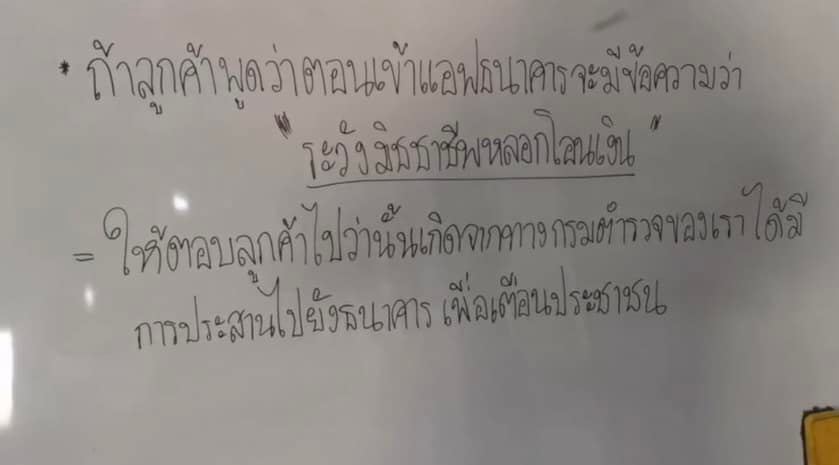 * ถ้าลูกค้าพูดว่าตอนเข้าแอพธนาคารจะมีข้อความว่า
" ระวังมิชชาชีพหลอกโอนเงิน "
= ให้ตอบลูกค้าไปว่านั้นเกิดจากทางกรมตำรวจของเราได้มี
การประสานไปยังธนาคาร เพื่อเตือนประชาชน